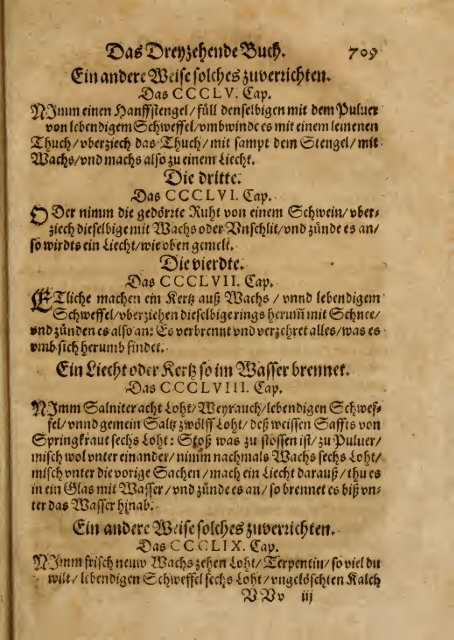 Das Dreyzehende Buch. 709
Ein andere Weise solches zuverrichten.
Das CCCLV. Cap.
NImm einen Hanffstengel/ füll denselbigen mit dem Puluer
von lebendigem Schweffel/ vmbwinde es mit einem leinenen
Thuch/ vberziech das Thuch/ mit sampt dem Stengel/ mit
Wachs/ vnd machs also zu einem Liecht.
Die dritte.
Das CCCLVI. Cap.
ODer nimm die gedörrte Ruht von einem Schwein/ vber-
ziech dieselbige mit Wachs oder Vnschlit/ vnd zünde es an/
so wirdts ein Liecht/ wie oben gemelt.
Die vierdte.
Das CCCLVII. Cap.
ETliche machen ein Kertz auß Wachs/ vnnd lebendigem
Schweffel/ vberziehen dieselbige rings herumb mit Schnee/
vnd zünden es also an: Es verbrennt vnd verzehret alles/ was es
vmb sich herumb findet.
Ein Liecht oder Kertz so im Wasser brennet.
Das CCCLVIII. Cap.
NImm Salniter acht Loht/ Weyrauch/ lebendigen Schwef-
fel/ vnnd gemein Saltz zwölff Loht/ deß weissen Saffts von
Springkraut sechs Loht: Stoß was zu stossen ist/ zu Puluer/
misch wol vnter einander/ nimm nachmals Wachs sechs Loht/
misch vnter die vorige Sachen/ mach ein Liecht darauß/ thu es
in ein Glas mit Wasser/ vnd zünde es an/ so brennet es biß vn-
ter das Wasser hinab.
Ein andere Weise solches zuverrichten.
Das CCCLIX. Cap.
NImm frisch neuw Wachs zehen Loht/ Terpentin/ so viel du
wilt/ lebendigen Schweffel sechs Loht/ vngelöschten Kalch
VVv iij